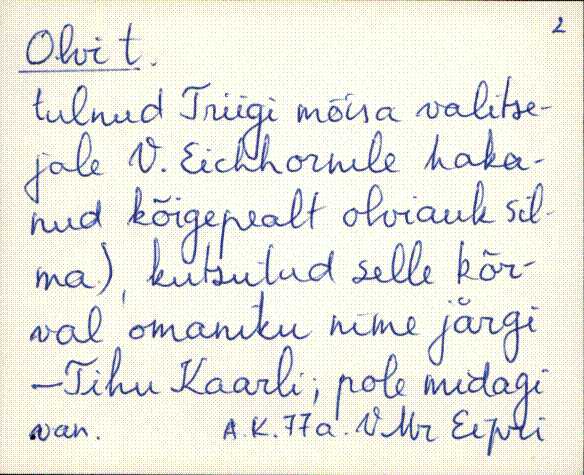 2
Olvi t.
tulnud Triigi mõisa valitse-
jale V. Eichhornile haka-
nud kõigepealt olviauk sil-
ma), kutsutud selle kõr-
val omaniku nime järgi
—Tihu Kaarli; pole midagi
van. A.K. 77a. VMr Eipri